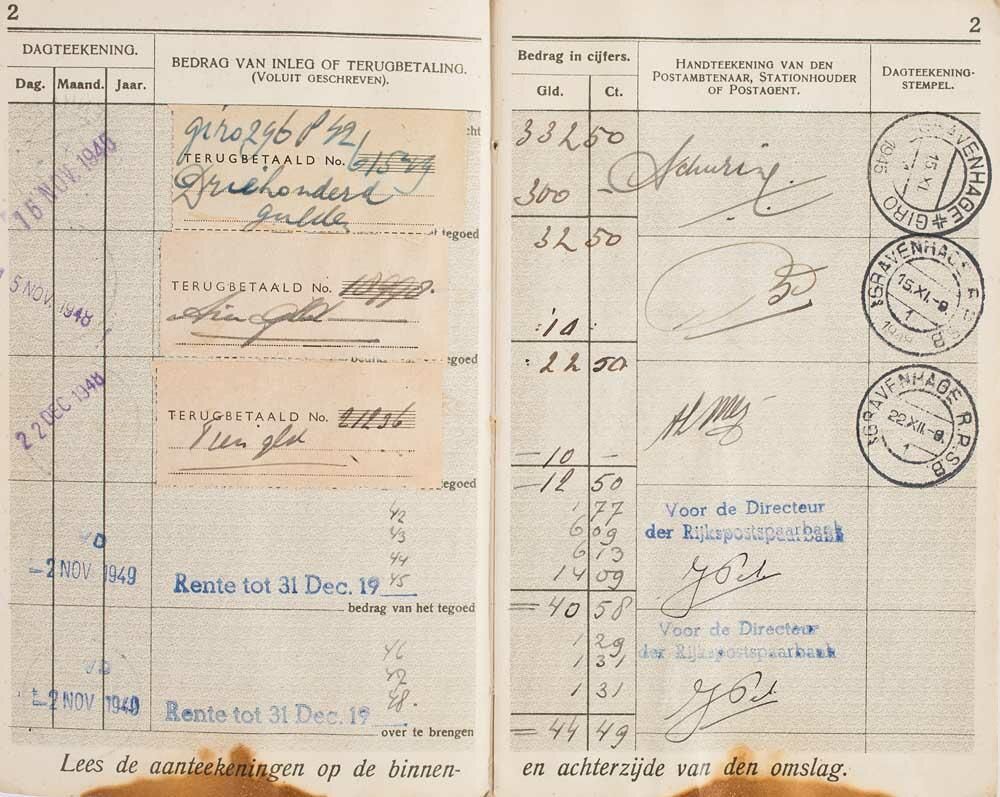 2
DAGTEEKENING.
Dag. Maand. Jaar.
BEDRAG VAN INLEG OF TERUGBETALING.
(VOLUIT GESCHREVEN).
16 NOV. 1948
giro 296 P 42
TERUGBETAALD No.
Driehonderd
gulden
tegoed
5 NOV 1948
TERUGBETAALD No.
Tien gld
egoed
22 DEC 1948
TERUGBETAALD No. 21296
Tien gld
egoed
42
43
44
-2 NOV 1949
Rente tot 31 Dec. 19 45
bedrag van het tegoed
46
47
48.
-2 NOV 1949
Rente tot 31 Dec. 19
over te brengen
Lees de aanteekeningen op de binnen-
2
Bedrag in cijfers.
Gld. Ct.
HANDTEEKENING VAN DEN
POSTAMBTENAAR, STATIONHOUDER
OF POSTAGENT.
DAGTEEKENING-
STEMPEL.
332 50
300 -
32 50
10
22 50
-10 -
12 50
1 77
6 09
6 13
14 09
40 58
1 29
1 31
1 31
44 49
Schuring
'sGRAVENHAGE GIRO
15 XI
'sGRAVENHAGE
15.XI.-9.
1
'sGRAVENHAGE R.P.S.B.
22 XII.-9.
1
Voor de Directeur
der Rijkspostspaarbank
Voor de Directeur
der Rijkspostspaarbank
en achterzijde van den omslag.